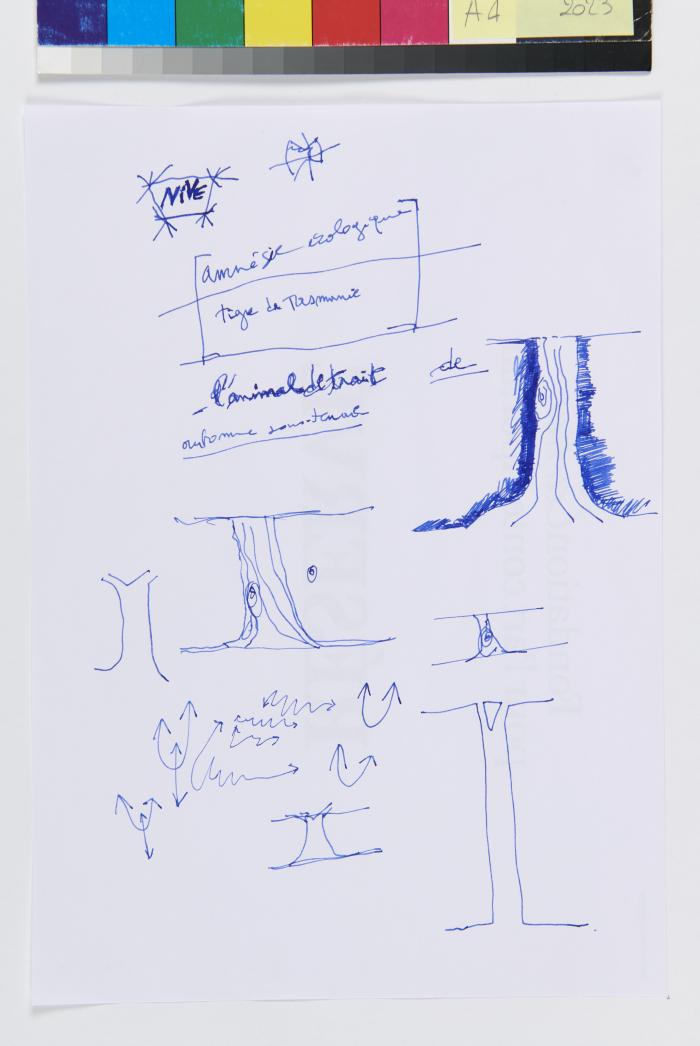 A4 2023
NIVE
amnésie écologique
tigre de Tasmanie
- l'animal de trait de
automne